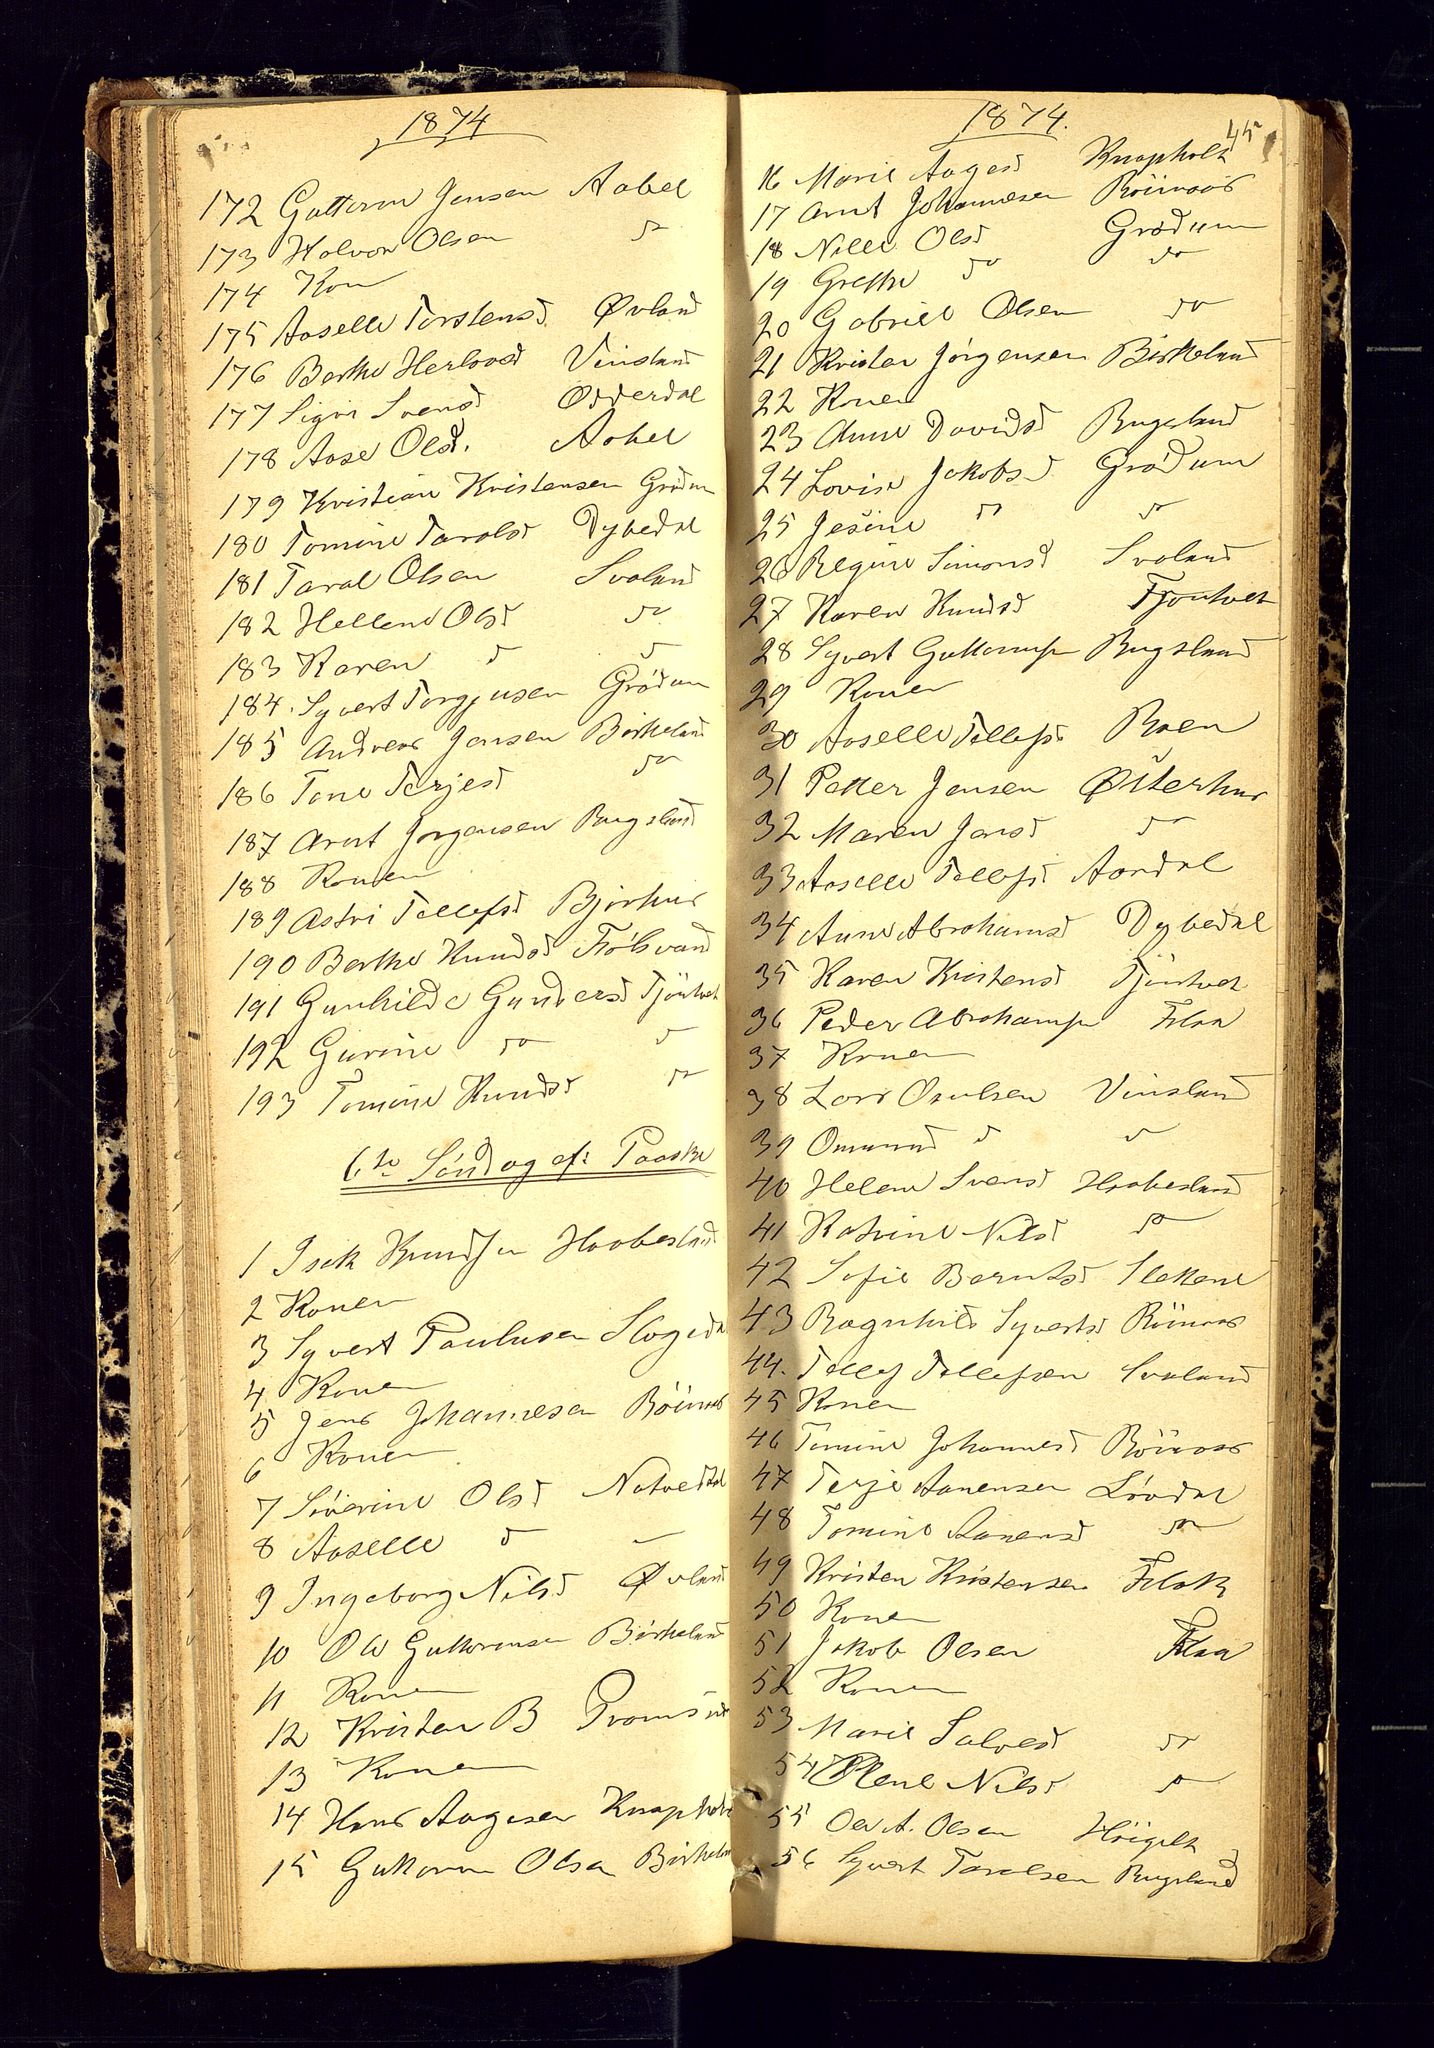 1874
172 Guttorm Jensen Aabel
173 Halvor Olsen do
174 Kon
175 Aaselle Torstensd Øvland
176 Berthe Herlovsd Vinsland
177 Sigri Svensd Odderdal
178 Aase Olsd. Aabel
179 Kristian Kristensen Grødum
180 Tomine Taralsd Dybedal
181 Taral Olsen Svaland
182 Hellene Olsd do
183 Karen d d
184. Syvert Torgjusen Grødum
185 Andreas Jensen Birkeland
186 Tone Terjesd do
187 Arnt Jørgensen Bugsland
188 Konen
189 Astri Tellefsd Bjorhus
190 Berthe Knudsd Flølsvand
191 Gunhilde Gundersd Tjöntvet
192 Gurine do d
193 Tomine Knudsd do
6te Søndag ef: Paaske
1 Isak Knudsen Haabesland
2 Konen
3 Syvert Paulusen Slogedal
4 Konen
5 Jens Johannesen Röinaas
6 Konen
7 Siverine Olsd Natvedtdal
8 Aaselle d —
9 Ingeborg Nilsd Øvland
10 Ole Guttormsen Birkeland
11 Konen
12 Kristen B Gromsund
13 Konen
14 Hans Aagesen Knapholt
15 Guttorm Olsen Birkeland
1874.
45
16 Marie Aagesd Knapholt
17 Arnt Johannesen Röinaas
18 Nille Olsd Grødum
19 Grethe do do
20 Gabriel Olsen do
21 Kristen Jørgensen Birkeland
22 Konen
23 Anne Davidsd Bugsland
24 Lovise Jakobsd Grødum
25 Jesine d do
26 Regine Simonsd Svaland
27 Karen Knudsd Tjöntvet
28 Syvert Guttormsen Bugsland
29 Konen
30 Aaselle Tellefsd Boen
31 Petter Jensen Østerhus
32 Maren Jensd do
33 Aaselle Tellefsd Aardal
34 Anne Abrahamsd Dybedal
35 Karen Kristensd Tjöntvet
36 Peder Abrahamsen Flaa
37 Konen
38 Lars Osulsen Vinsland
39 Omund d d
40 Helene Svensd Haabesland
41 Katrine Nilsd do
42 Sofie Berntsd Slettene
43 Ragnhild Syvertsd Röinaas
44. Tellef Tellefsen Svaland
45 Konen
46 Tomine Johannesd Röinaas
47 Terje Aanensen Lövdal
48 Tomine Aanensd do
49 Kristen Kristensen Flak
50 Konen
51 Jakob Olsen Flaa
52 Konen
53 Marie Salvesd do
54 Olene Nilsd do
55 Ole A. Olsen Höigilt
56 Syvert Taralsen Bugsland